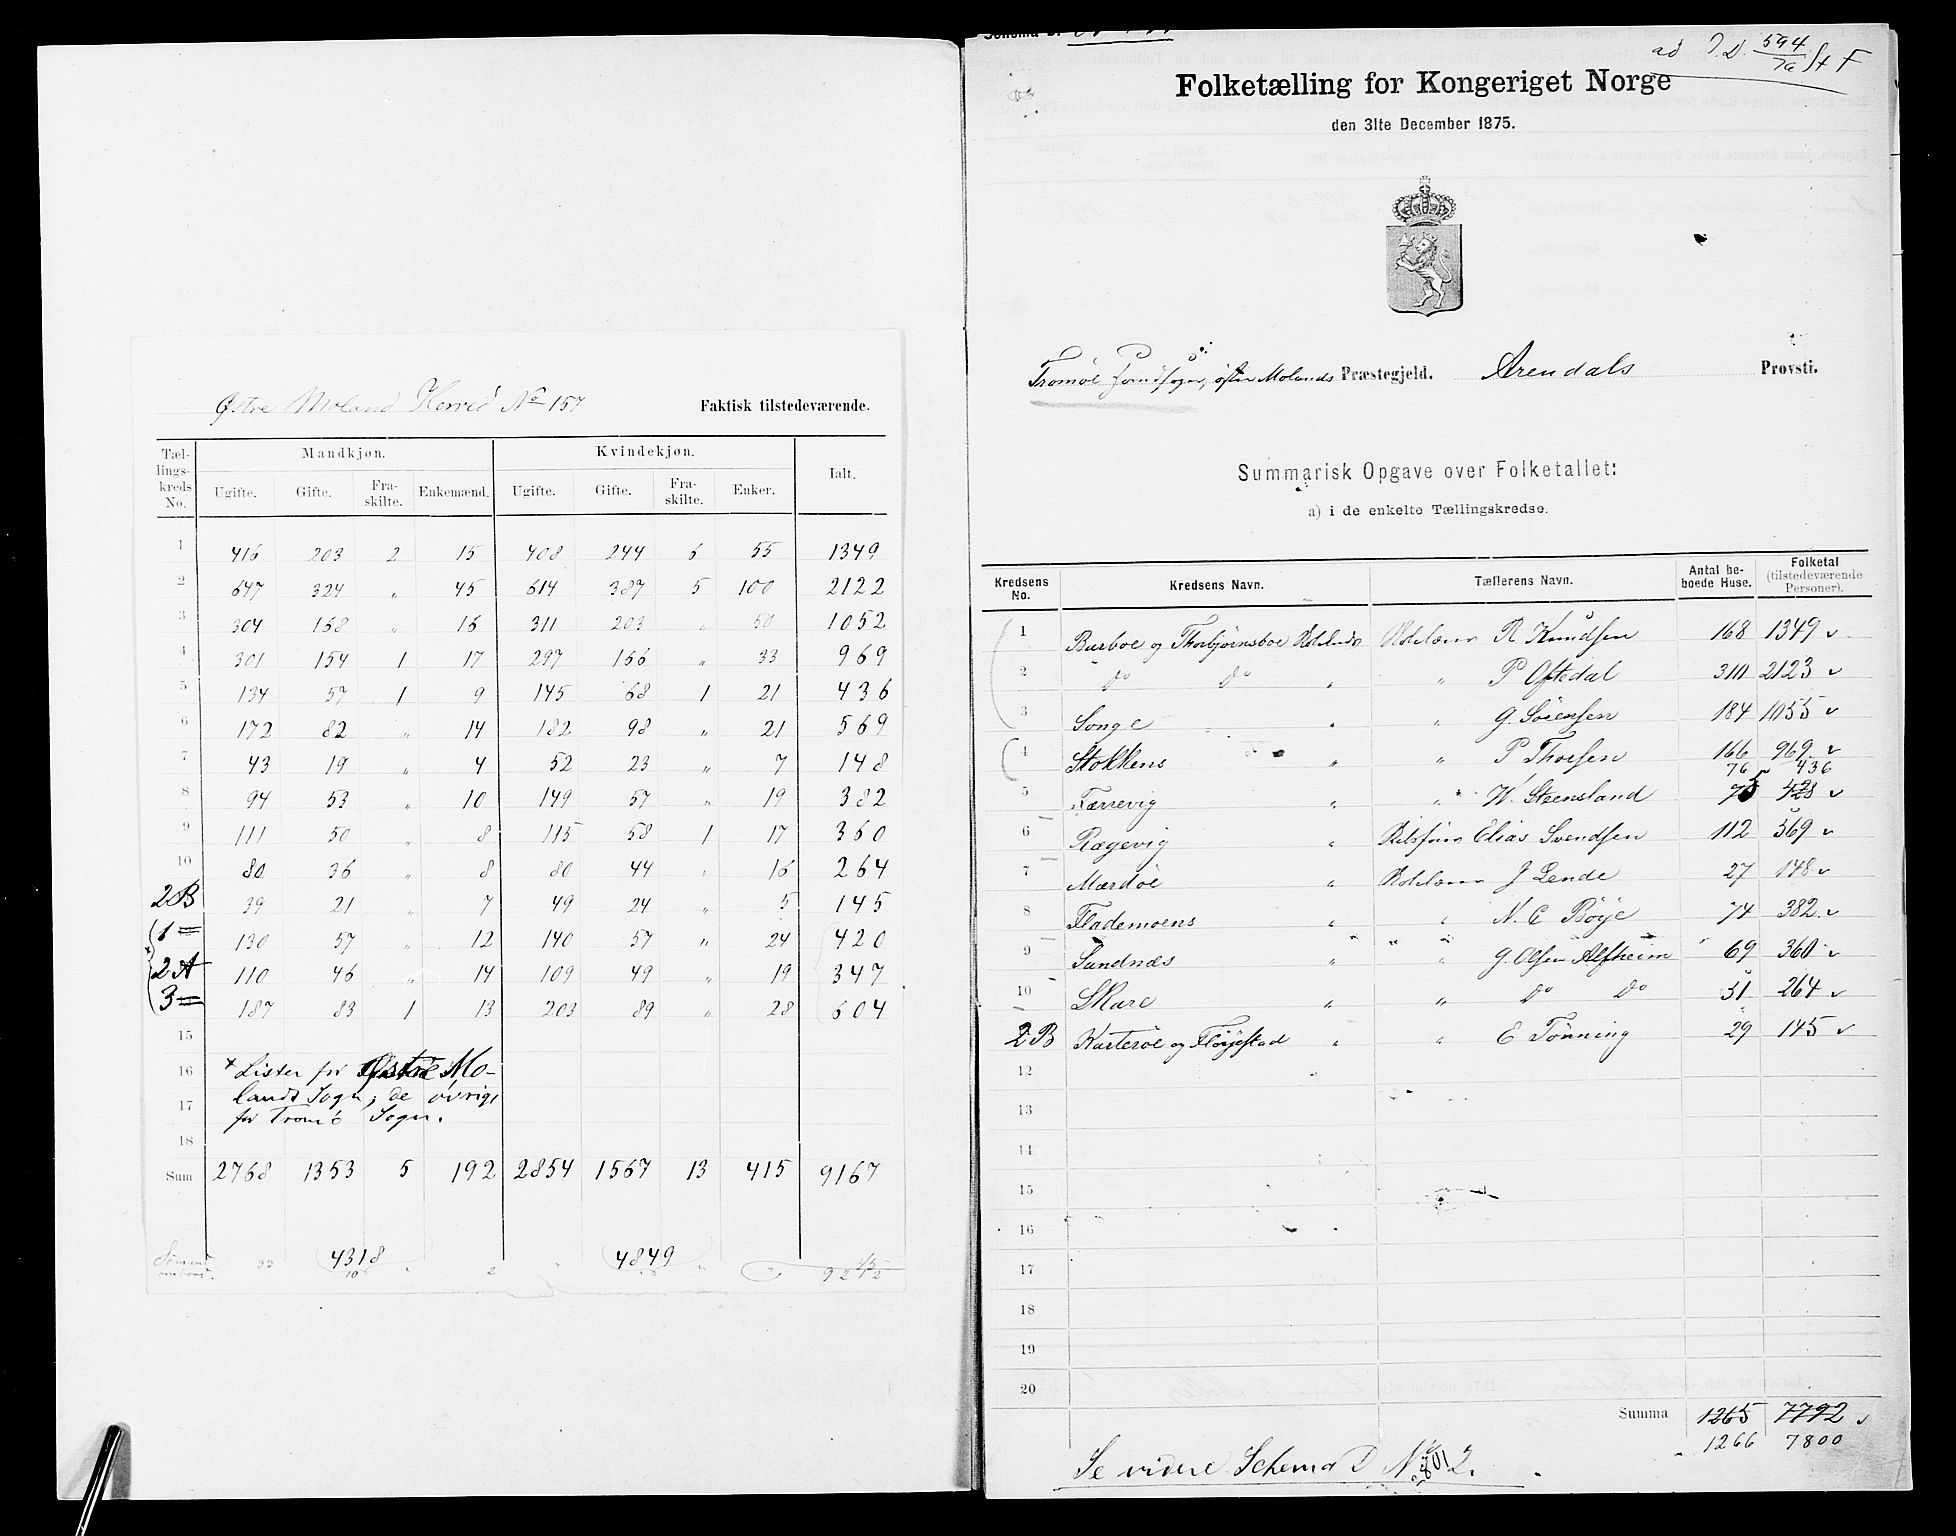 Østre Moland Herred No 157 Faktisk tilstedeværende.
Tællingskreds No. Mandkjøn. Kvindekjøn. Ialt.
Ugifte. Gifte. Fraskilte. Enkemænd. Ugifte. Gifte. Fraskilte. Enker.
1 416 203 2 15 408 244 6 55 1349
2 647 324 „ 45 614 387 5 100 2122
3 304 168 „ 16 311 203 „ 50 1052
4 301 154 1 17 297 166 „ 33 969
5 134 57 1 9 145 68 1 21 436
6 172 82 „ 14 182 98 „ 21 569
7 43 19 „ 4 52 23 „ 7 148
8 94 53 „ 10 149 57 „ 19 382
9 111 50 „ 8 115 58 1 17 360
10 80 36 „ 8 80 44 „ 16 264
2B 39 21 „ 7 49 24 „ 5 145
1 = 130 57 „ 12 140 57 „ 24 420
2A 110 46 „ 14 109 49 „ 19 347
3 = 187 83 1 13 203 89 „ 28 604
15
16 × Lister for Østre Mo-
17 lands Sogn; de øvrige
for Tromö Sogn.
18
Sum 2768 1353 5 192 2854 1567 13 415 9167
4318 4849
Sømænd ombord. 33 10 „ 2 „ „
Schema
ad J.D. 594/76 St F
Folketælling for Kongeriget Norge
den 31te December 1875.
Tromöe Sogn, østre Molands Præstegjeld. Arendals Provsti.
Summarisk Opgave over Folketallet:
a) i de enkelte Tællingskredse.
Kredsens No. Kredsens Navn. Tællerens Navn. Antal beboede Huse. Folketal (tilstedeværende Personer).
1 Busboe og Thorbjørnsboe R Knudsen 168 1349 ✓
2 do do „ „ P Oftedal 310 2123 ✓
3 Songe „ „ G. Sörensen 184 1055 ✓
4 Stokkens „ „ P Thorsen 166 969 ✓
76 436
5 Færrevig „ „ W. Steensland 75 428 ✓
6 Rægevig „ Elias Svendsen 112 569 ✓
7 Mærdöe „ J Lende 27 148 ✓
8 Flademoens „ „ N. C Böye 74 382 ✓
9 Sandnæs „ „ G. Olsen Alfheim 69 360 ✓
10 Skare „ „ do do 51 264 ✓
2B Karteröe og Fløjestad „ „ E Tönning 29 145 ✓
12
13
14
15
16
17
18
19
20
Summa 1265 7792 ✓
1266 7800
Se videre Schema D No 2.